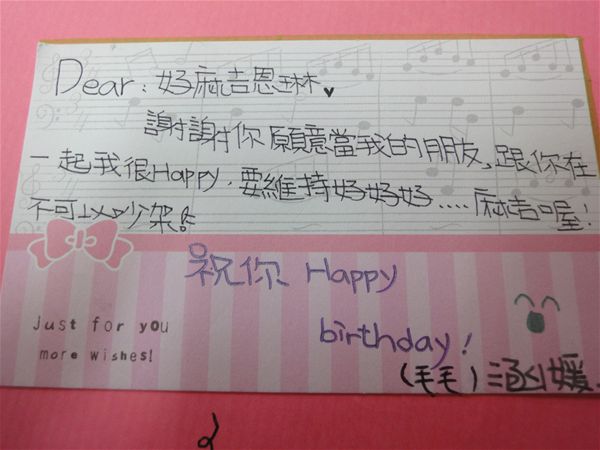 Dear：好麻吉恩琳♥
謝謝你願意當我的朋友,跟你在
一起我很Happy，要維持好好好....麻吉喔!
不可以吵架!
祝你 Happy
birthday!
just for you
more wishes!
(毛毛) 涵媛